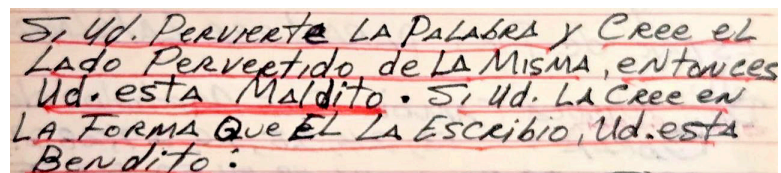 Si Ud. Pervierte La Palabra y Cree el
Lado Pervertido de La Misma, entonces
Ud. esta Maldito. Si Ud. La Cree en
La Forma Que El La Escribio, Ud. esta
Bendito: